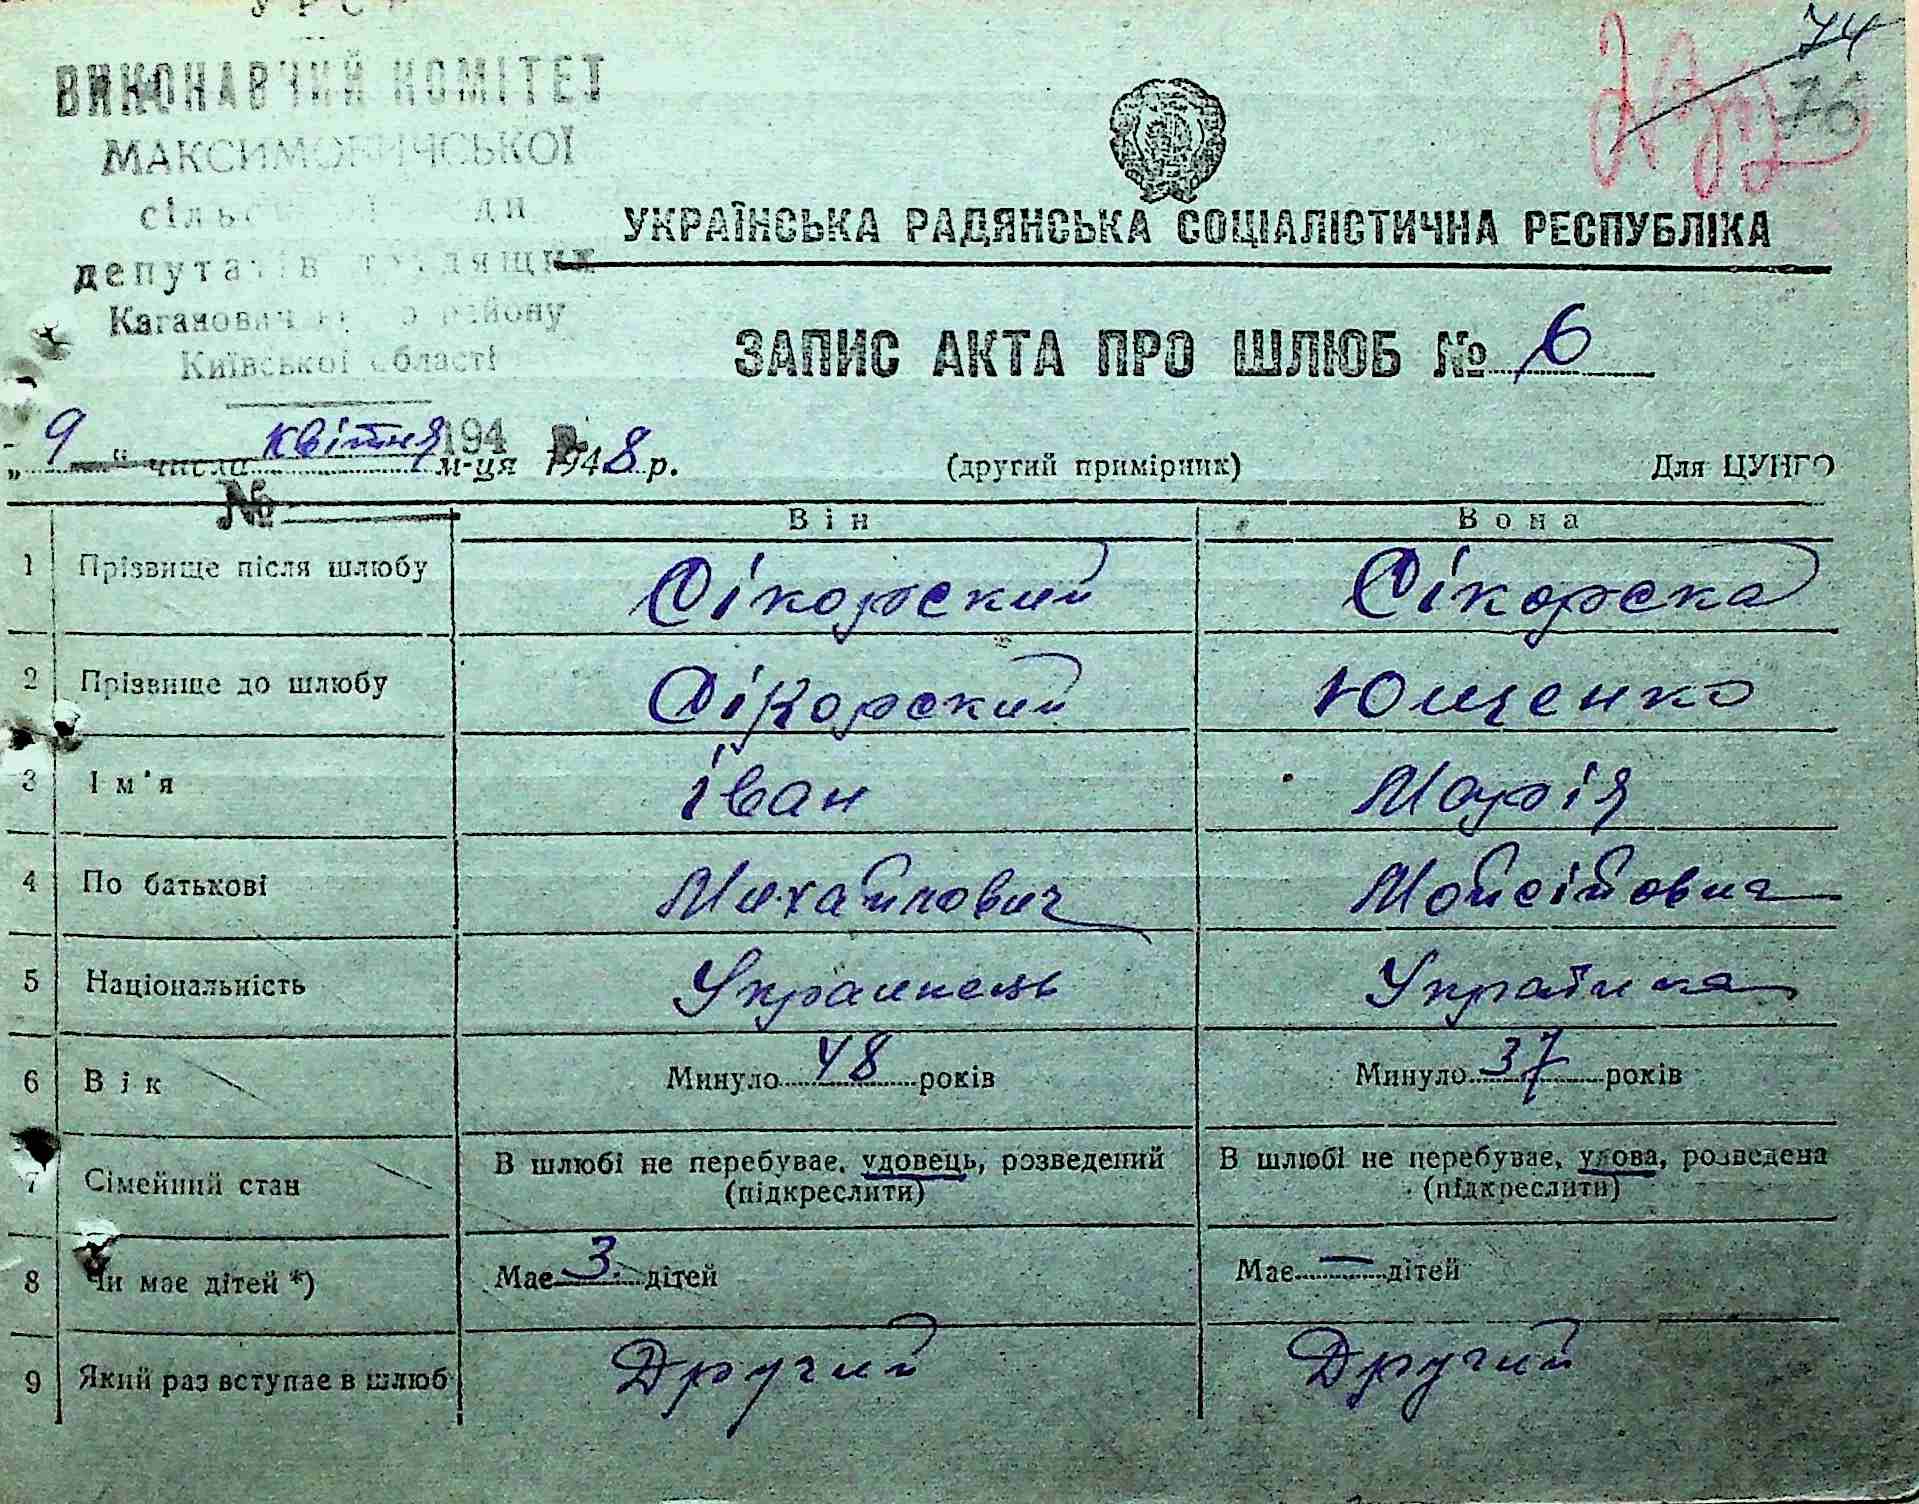 УРСР
ВИКОНАВЧИЙ КОМІТЕТ
МАКСИМОВИЧСЬКОЇ
сільської ради
депутатів трудящих
Кагановичського району
Київської області
74
76
УКРАЇНСЬКА РАДЯНСЬКА СОЦІАЛІСТИЧНА РЕСПУБЛІКА
ЗАПИС АКТА ПРО ШЛЮБ № 6
„9" числа квітня м-ця 194 1948 р. (другий примірник) Для ЦУНГО
№
Він Вона
1 Прізвище після шлюбу Сікорский Сікорска
2 Прізвище до шлюбу Сікорский Ющенко
3 Ім'я Іван Марія
4 По батькові Михайлович Мойсійович
5 Національність Украинець Українка
6 Вік Минуло 48 років Минуло 37 років
7 Сімейний стан В шлюбі не перебуває, удовець, розведений (підкреслити) В шлюбі не перебуває, удова, розведена (підкреслити)
8 Чи має дітей *) Має 3 дітей Має — дітей
9 Який раз вступає в шлюб Другий Другий